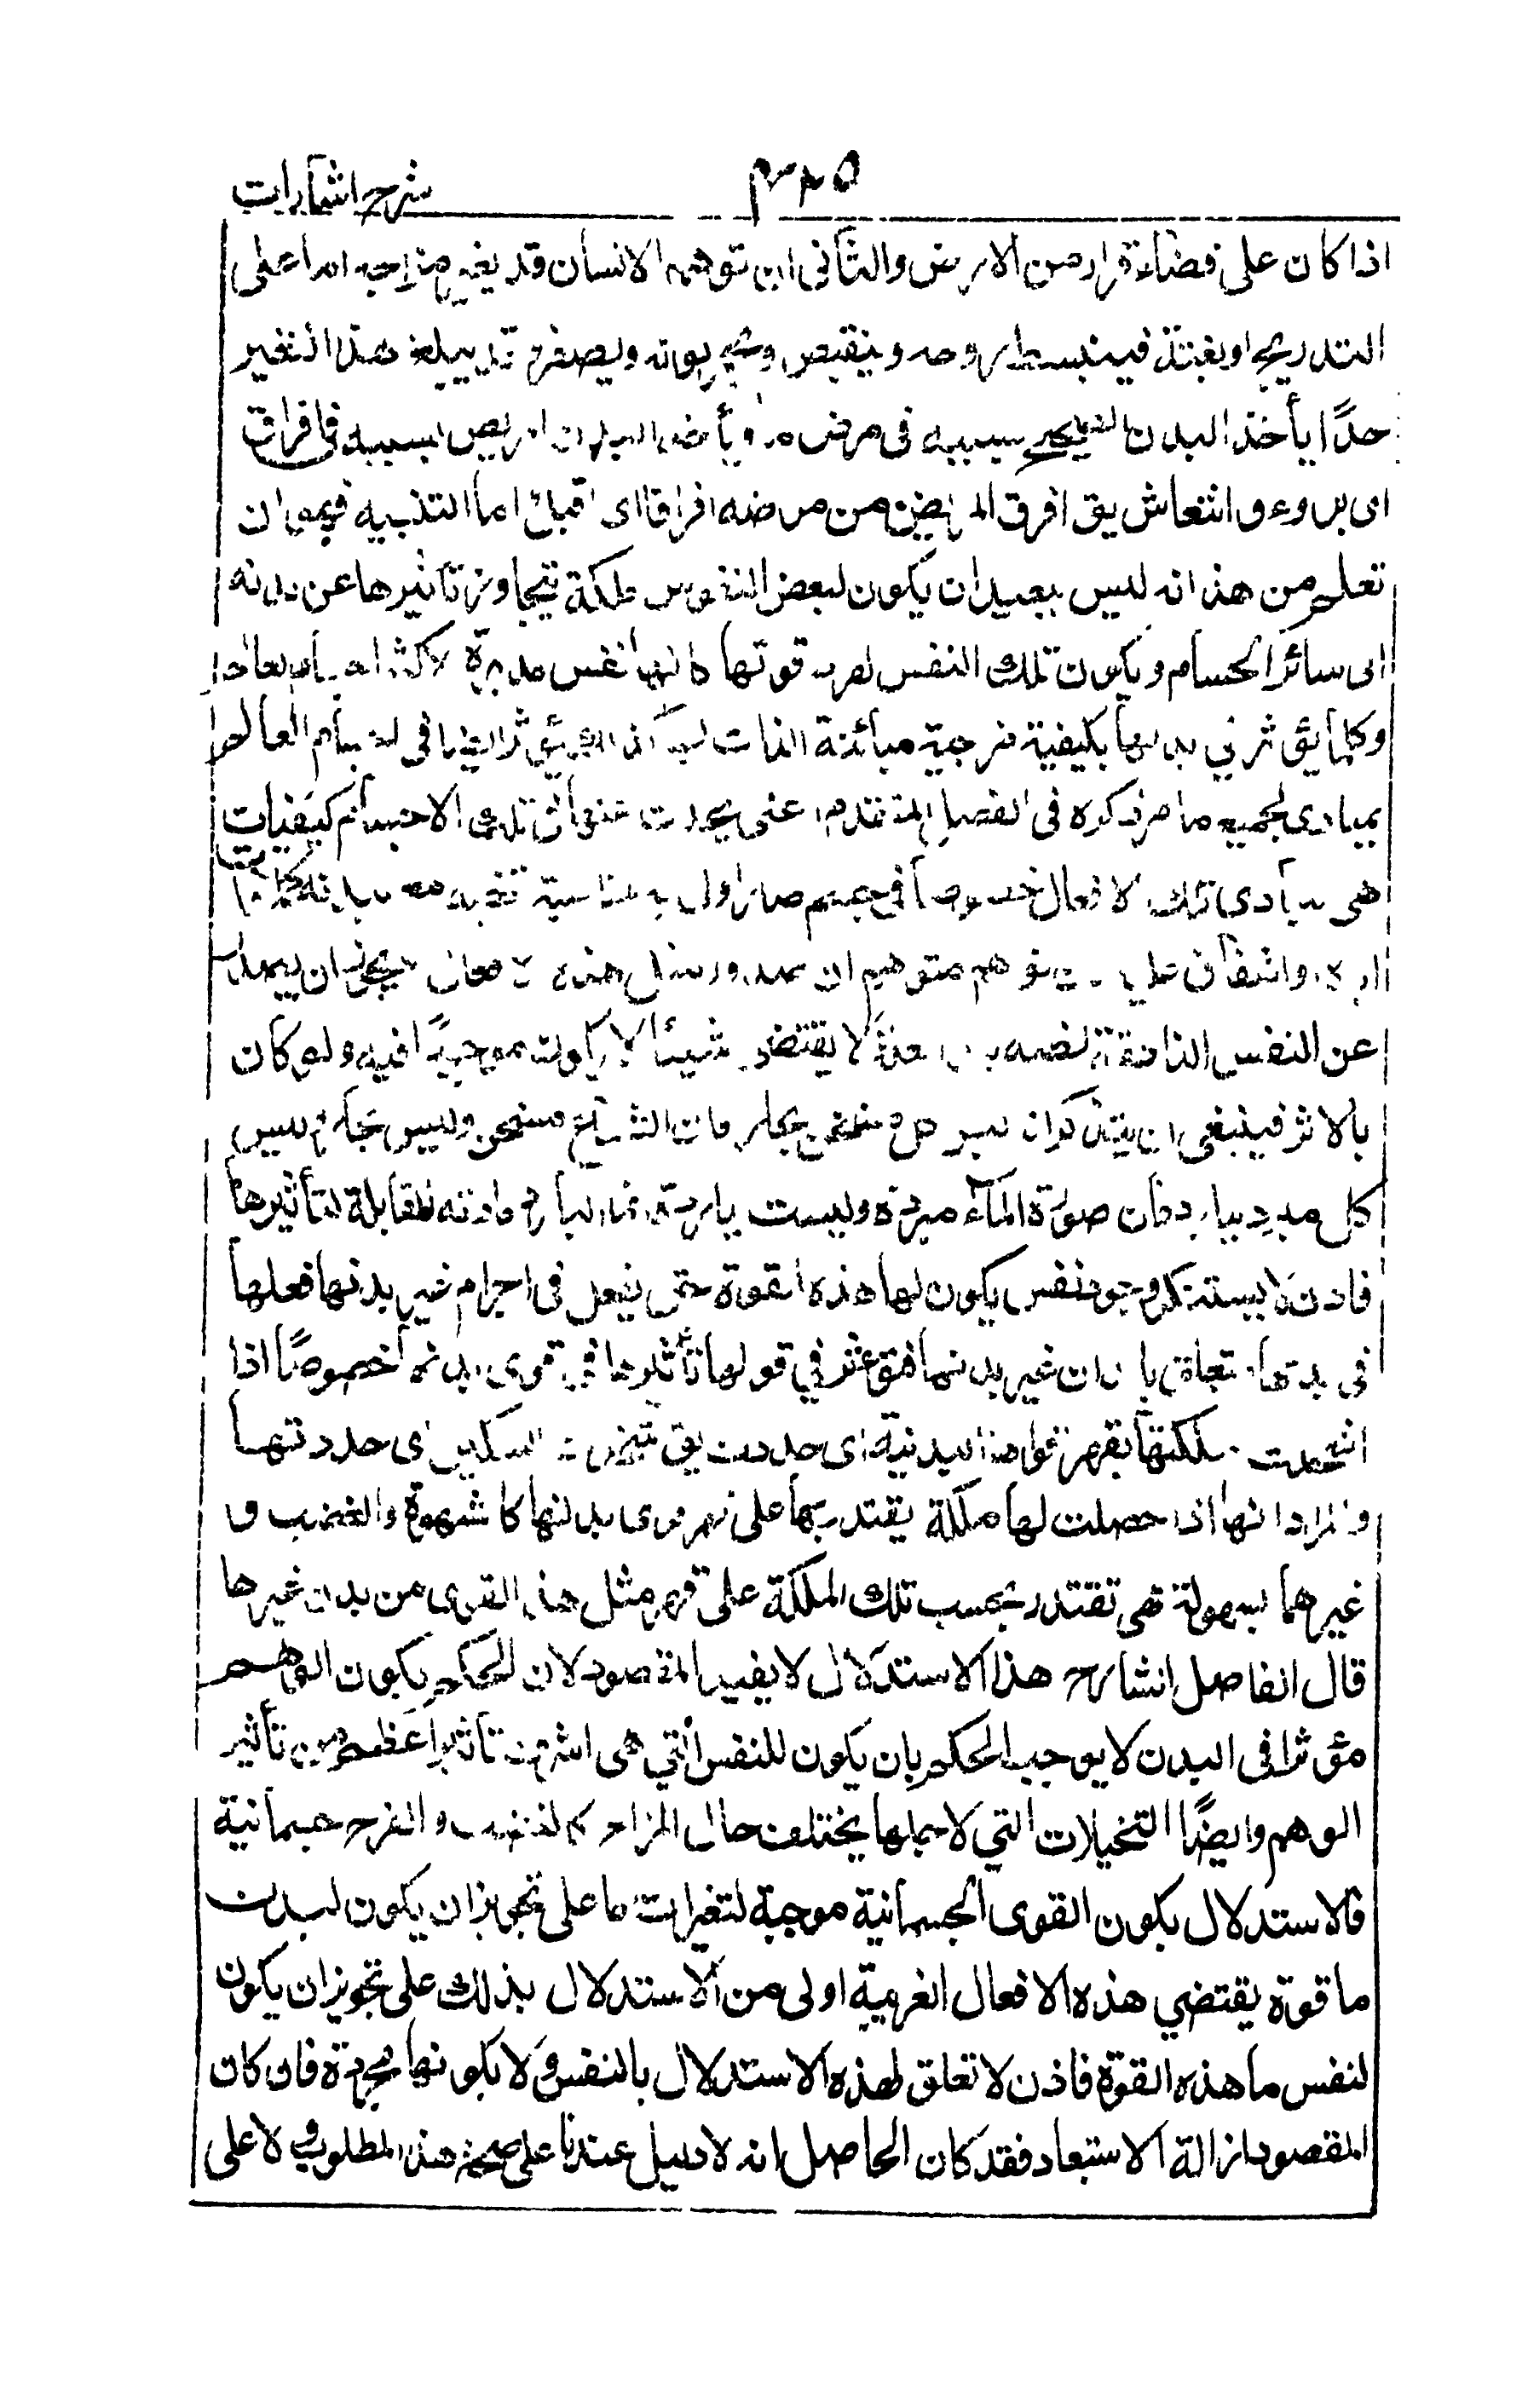 شرح اشارات
اذا كان على فضاء قرار من الارض والثانى ان توهم الانسان قد يغير مزاجه اما على
التدريج او بغتة فينبسط روحه وينقبض ويصفر قد يبلغ هذا التغير
حدًّا يأخذ البدن الصحيح بسببه فى مرض البدن المريض بسببه فى افراق
اى برؤ وانتعاش يق افرق المريض من مرضه افراقا اى اقبل اما التنبيه فهو ان
تعلم من هذا انه ليس ببعيد ان يكون لبعض النفوس ملكة يتجاوز تاثيرها عن بدنه
الى سائر الاجسام ويكون تلك النفس لفرط قوتها كانها نفس مدبرة لاكثر اجسام العالم
وكما يؤثر فى بدنها بكيفية مزاجية مبائنة الذات لها فى اجسام العالم
بمبادى لجميع ما مر ذكره فى الفصل المتقدم اعنى يحدث عنها فى تلك الاجسام كيفيات
هى مبادى تلك الافعال خصوصاً فى جسم صار اولى به لمناسبة تخصه مع بدنه
متوهم ان صدور مثل هذه لا يجوز ان يصدر
عن النفس الناطقة لا يقتضى شيئا لا يكون موجودًا فيه ولو كان
بالاثر فينبغى ان يتذكر انه ليس كل مسخن بحار فان الشعاع مسخن وليس بحار وليس
كل مبرد ببارد فان صورة المآء مبردة وليست باردة انما البارد مادته القابلة لتأثيرها
فاذن لا يستنكر وجود نفس يكون لها هذه القوة حتى يفعل فى اجرام غير بدنها فعلها
فى بدنها تتعلق بابدان غير بدنها فتؤثر فى قواها تأثيرها فى قوى بدنها خصوصاً اذا
شحذت ملكتها بقهر قواها البدنية اى حددت يق شحذت السكين اى حددتها
والمراد انها اذا حصلت لها ملكة يقتدر بها على قهر قوى بدنها كالشهوة والغضب و
غيرهما بسهولة فهى تقتدر بحسب تلك الملكة على قهر مثل هذه القوى من بدن غيرها
قال الفاضل الشارح هذا الاستدلال لا يفيد المقصود لان الحكم بكون الوهم
مؤثرا فى البدن لا يوجب الحكم بان يكون للنفس التى هى اشرف تأثيرا اعظم من تأثير
الوهم وايضًا التخيلات التى لاجلها يختلف حال المزاج كالغضب والفرح جسمانية
فالاستدلال بكون القوى الجسمانية موجبة لتغيرات ما على تجويز ان يكون لبدن
ما قوة يقتضى هذه الافعال الغريبة اولى من الاستدلال بذلك على تجويز ان يكون
لنفس ما هذه القوة فاذن لا تعلق لهذه الاستدلال بالنفس ولا بكونها مجردة فان كان
المقصود ازالة الاستبعاد فقد كان الحاصل انه لا دليل عندنا على صحة هذا المطلوب ولا على